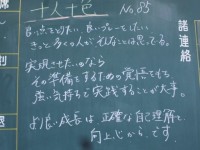 十人十色 No.85
良い点をとりたい、良いプレーをしたい
きっと多くの人がそんなことを思ってる。
実現させたいなら
その準備をするための覚悟をもち
強い気持ちで実践することが大事。
より良い成長は正確な自己理解と
向上心からです。
諸連絡